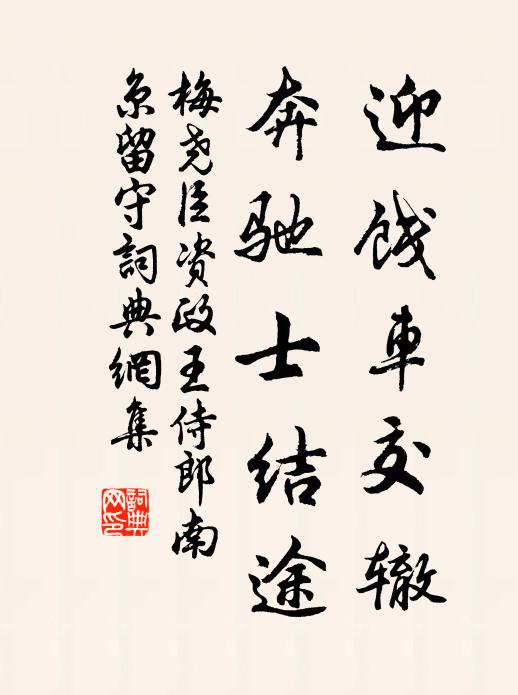 迎饯車交辙
奔驰士结途
梅尧臣资政王侍郎南
京留守詞典網集
詞典网印